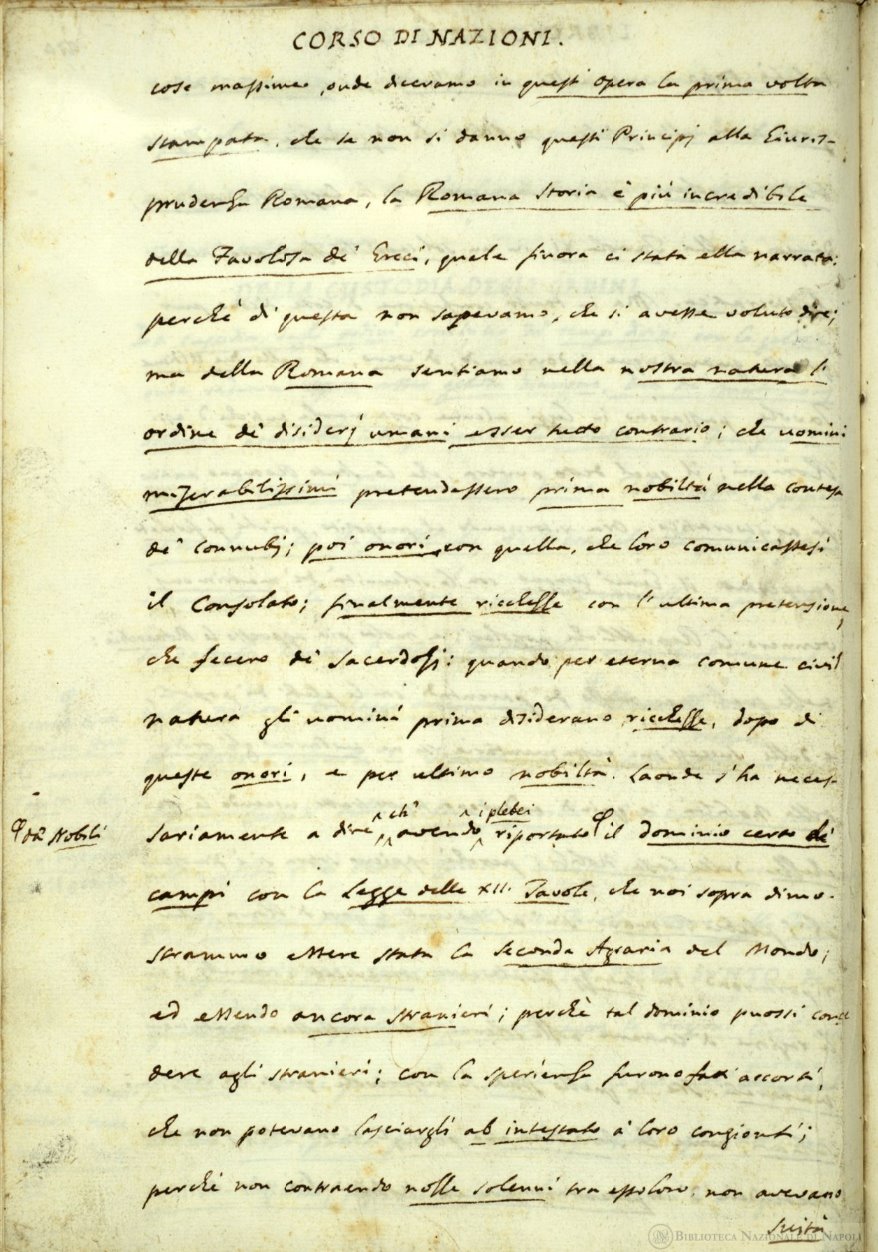 CORSO DI NAZIONI.
cose massime, onde dicevamo in quest' opera la prima volta
stampata, che se non si danno questi Principj alla Giuris-
prudenza Romana, la Romana Storia è più incredibile
della Favolosa de' Greci, quale finora ci è stata ella narrata:
perchè di questa non sapevamo, che si avesse voluto dire;
ma della Romana sentiamo nella nostra natura l'
ordine de' disiderj umani esser tutto contrario; che uomini
miserabilissimi pretendessero prima nobiltà nella contesa
de' connubj; poi onori con quella, che loro comunicassesi
il Consolato; finalmente ricchezze con l'ultima pretensione,
che fecero de' Sacerdozj: quando per eterna comune civil
natura gli uomini prima disiderano ricchezze, dopo di
queste onori, e per ultimo nobiltà. Laonde s'ha neces-
ch' i plebei
da' Nobili
sariamente a dire, avendo riportato il dominio certo de'
campi con la Legge delle XII. Tavole, che noi sopra dimo-
strammo essere stata la seconda Agraria del Mondo;
ed essendo ancora stranieri; perchè tal dominio puossi conce
dere agli stranieri; con la sperienza furono fatti accorti,
che non potevano lasciargli ab intestato a' loro congionti;
perchè non contraendo nozze solenni tra essoloro, non avevano
suità
BIBLIOTECA NAZIONALE DI NAPOLI